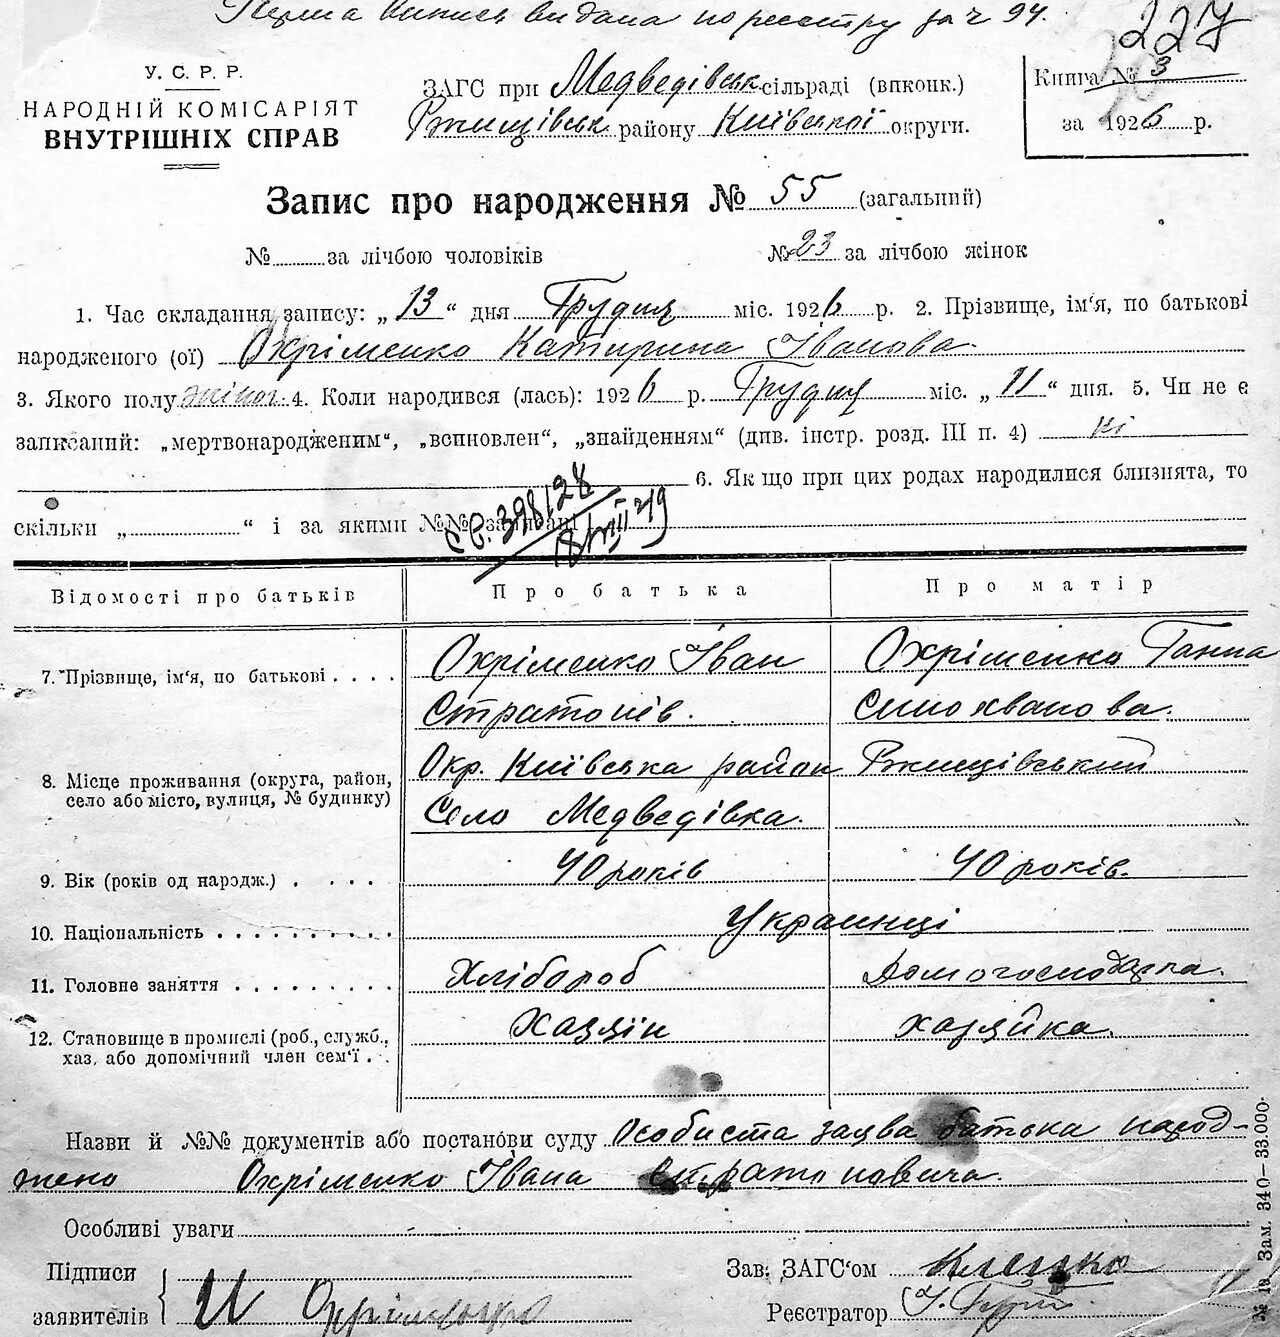 Перша Випись видана по реєстру за ч 94.
227
У. С. Р. Р.
НАРОДНІЙ КОМІСАРІЯТ
ВНУТРІШНІХ СПРАВ
ЗАГС при Медведівськ сільраді (впконк.)
Ржищівськ району Київської округи.
Книга № 3
за 1926 р.
Запис про народження № 55 (загальний)
№ за лічбою чоловіків № 23 за лічбою жінок
1. Час складання запису: „ 13 “ дня Грудня міс. 1926 р. 2. Прізвище, ім‘я, по батькові
народженого (ої) Охріменко Катирина Іванова.
3. Якого полу жіноч. 4. Коли народився (лась): 1926 р. Грудня міс. „ 11 “ дня. 5. Чи не є
записаний: „мертвонародженим“, „всиновлен“, „знайденням“ (див. інстр. розд. III п. 4) ні
6. Як що при цих родах народилися близнята, то
скільки „ “ і за якими №№ записані
398128
18/VIII 49
Відомості про батьків Про батька Про матір
7. Прізвище, ім‘я, по батькові . . . . Охріменко Іван Охріменко Ганна
Стратонів. Синохванова.
8. Місце проживання (округа, район, Окр. Київська район Ржищівський
село або місто, вулиця, № будинку) Село Медведівка.
9. Вік (років од народж.) . . . . 40 років 40 років.
10. Національність . . . . . . . . . . Украинці
11. Головне заняття . . . . . . . . . Хлібороб Домогосподарка.
12. Становище в промислі (роб., служб., Хазяїн хазяйка.
хаз. або допомічний член сем‘ї . .
Назви й №№ документів або постанови суду Особиста заява батька народ-
жено Охріменко Івана Стратоновича.
Особливі уваги
Підписи
заявителів И Охріменко
Зав. ЗАГС‘ом
Реєстратор
№ 1в. Зам. 340–33.000.